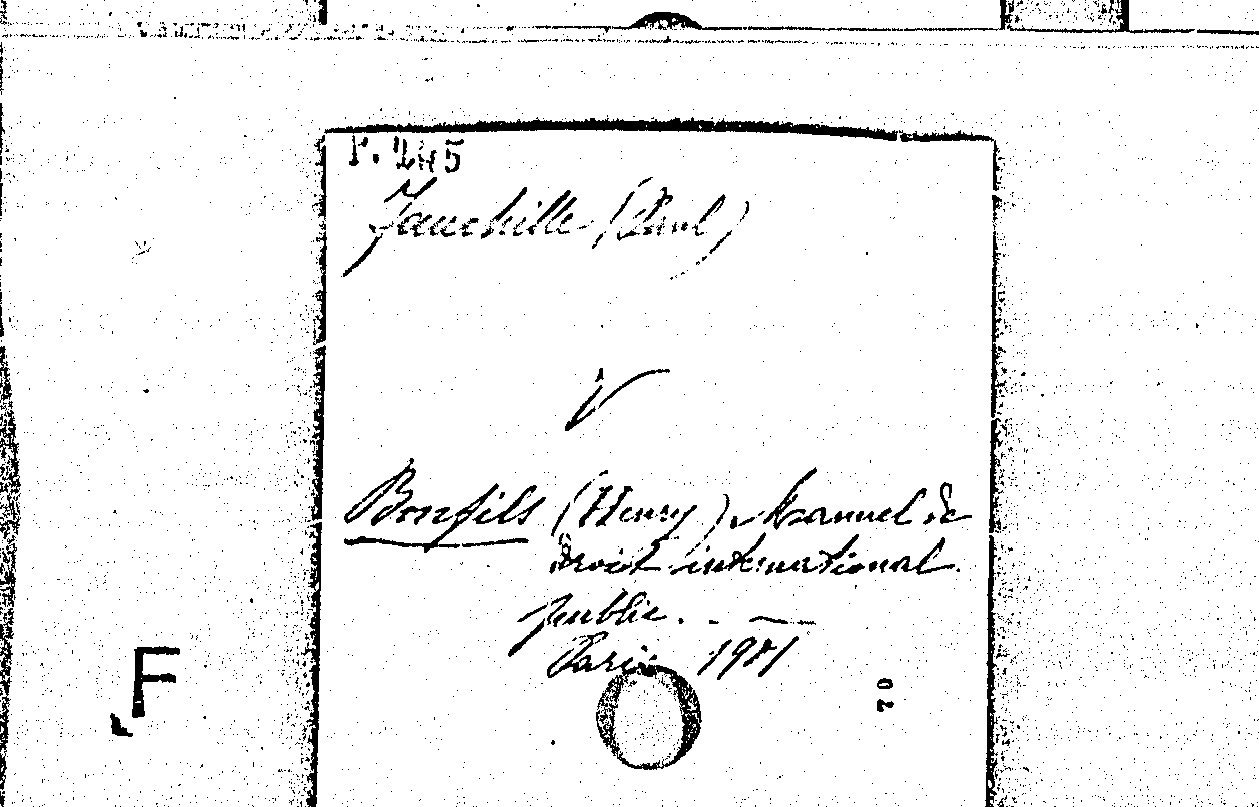 F. 245
Fauchille (Paul)
V
Bonfils (Henry), Manuel de
droit international
public. . —
Paris 1901
70
F